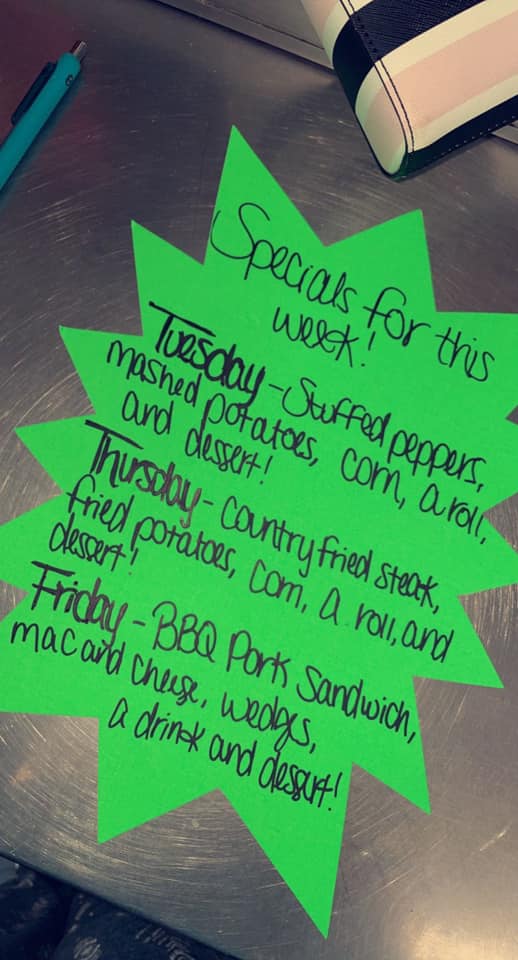 Specials for this
week!
Tuesday - Stuffed peppers,
mashed potatoes, corn, a roll,
and dessert!
Thursday - Country fried steak,
fried potatoes, corn, a roll, and
dessert!
Friday - BBQ Pork Sandwich,
mac and cheese, wedges,
a drink and dessert!